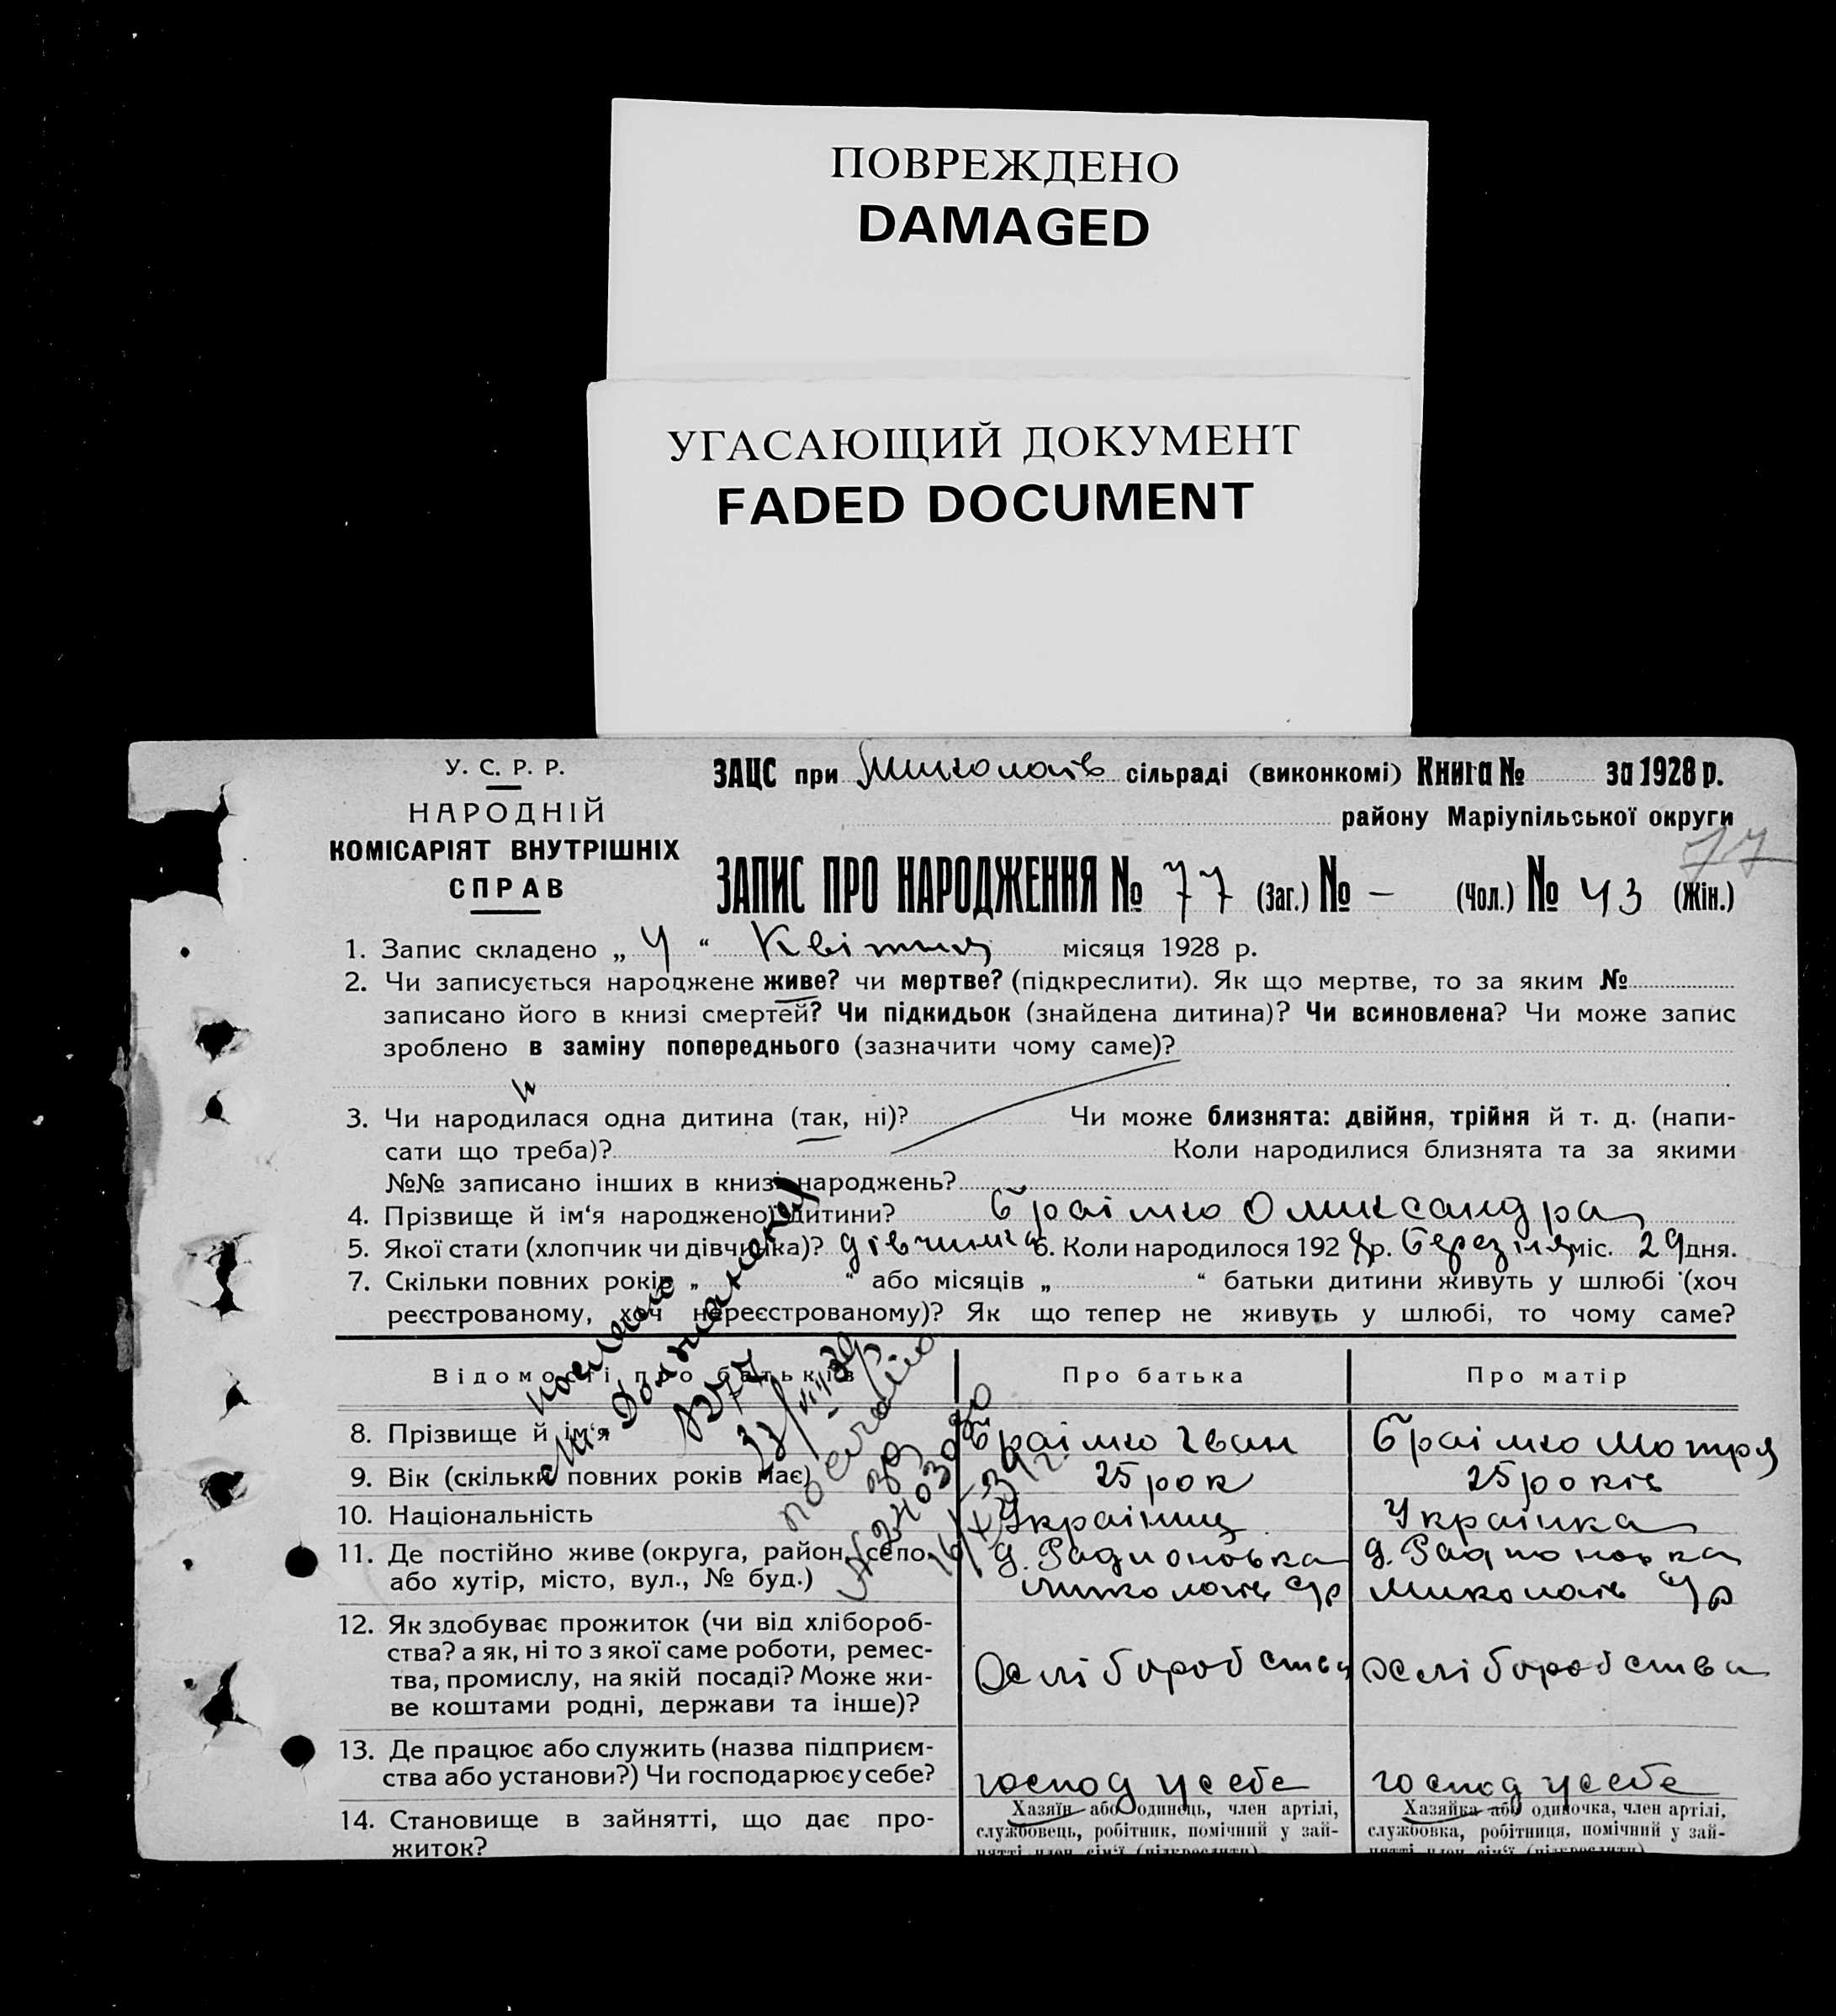 ПОВРЕЖДЕНО
DAMAGED
УГАСАЮЩИЙ ДОКУМЕНТ
FADED DOCUMENT
У. С. Р. Р.
НАРОДНІЙ
КОМІСАРІЯТ ВНУТРІШНІХ
СПРАВ
ЗАЦС при Миколаїв сільраді (виконкомі) Книга № за 1928 р.
району Маріупільської округи
77
ЗАПИС ПРО НАРОДЖЕННЯ № 77 (Заг.) № – (Чол.) № 43 (Жін.)
1. Запис складено „ 4 “ Квітня місяця 1928 р.
2. Чи записується народжене живе? чи мертве? (підкреслити). Як що мертве, то за яким №
записано його в книзі смертей? Чи підкидьок (знайдена дитина)? Чи всиновлена? Чи може запис
зроблено в заміну попереднього (зазначити чому саме)?
3. Чи народилася одна дитина (так, ні)? Чи може близнята: двійня, трійня й т. д. (напи-
сати що треба)? Коли народилися близнята та за якими
№№ записано інших в книзі народжень?
4. Прізвище й ім‘я народженої дитини? Браілко Оликсандра
5. Якої стати (хлопчик чи дівчинка)? дівчинка 6. Коли народилося 1928 р. Березіля міс. 29 дня.
7. Скільки повних років „ “ або місяців „ “ батьки дитини живуть у шлюбі (хоч
реєстрованому, хоч нереєстрованому)? Як що тепер не живуть у шлюбі, то чому саме?
Відомості про батьків Про батька Про матір
8. Прізвище й ім‘я Браілко Іван Браілко Мотря
9. Вік (скільки повних років має) 25 рок 25 років
10. Національність Украінец Украінка
11. Де постійно живе (округа, район, село, д. Радионовка д. Радионовка
або хутір, місто, вул., № буд.) Миколаїв с/р Миколаїв с/р
12. Як здобуває прожиток (чи від хлібороб-
ства? а як, ні то з якої саме роботи, ремес-
тва, промислу, на якій посаді? Може жи- Хліборобства хліборобства
ве коштами родні, держави та інше)?
13. Де працює або служить (назва підприєм-
ства або установи?) Чи господарює у себе? господ усебе господ усебе
14. Становище в зайнятті, що дає про-
житок?
Хазяїн або одинець, член артілі,
службовець, робітник, помічний у зай-
нятті член сім‘ї (підкреслити)
Хазяйка або одиночка, член артілі,
службовка, робітниця, помічний у зай-
нятті член сім‘ї (підкреслити)